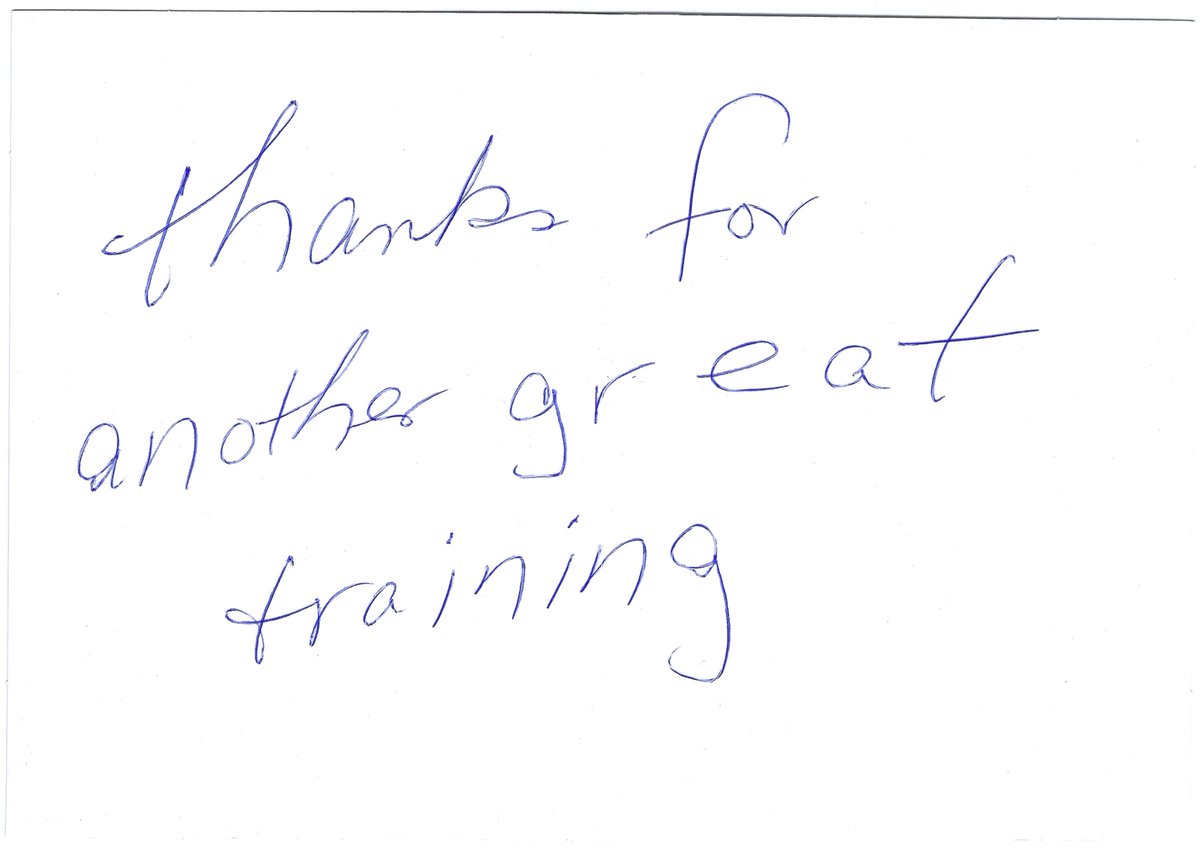 thanks for
another great
training